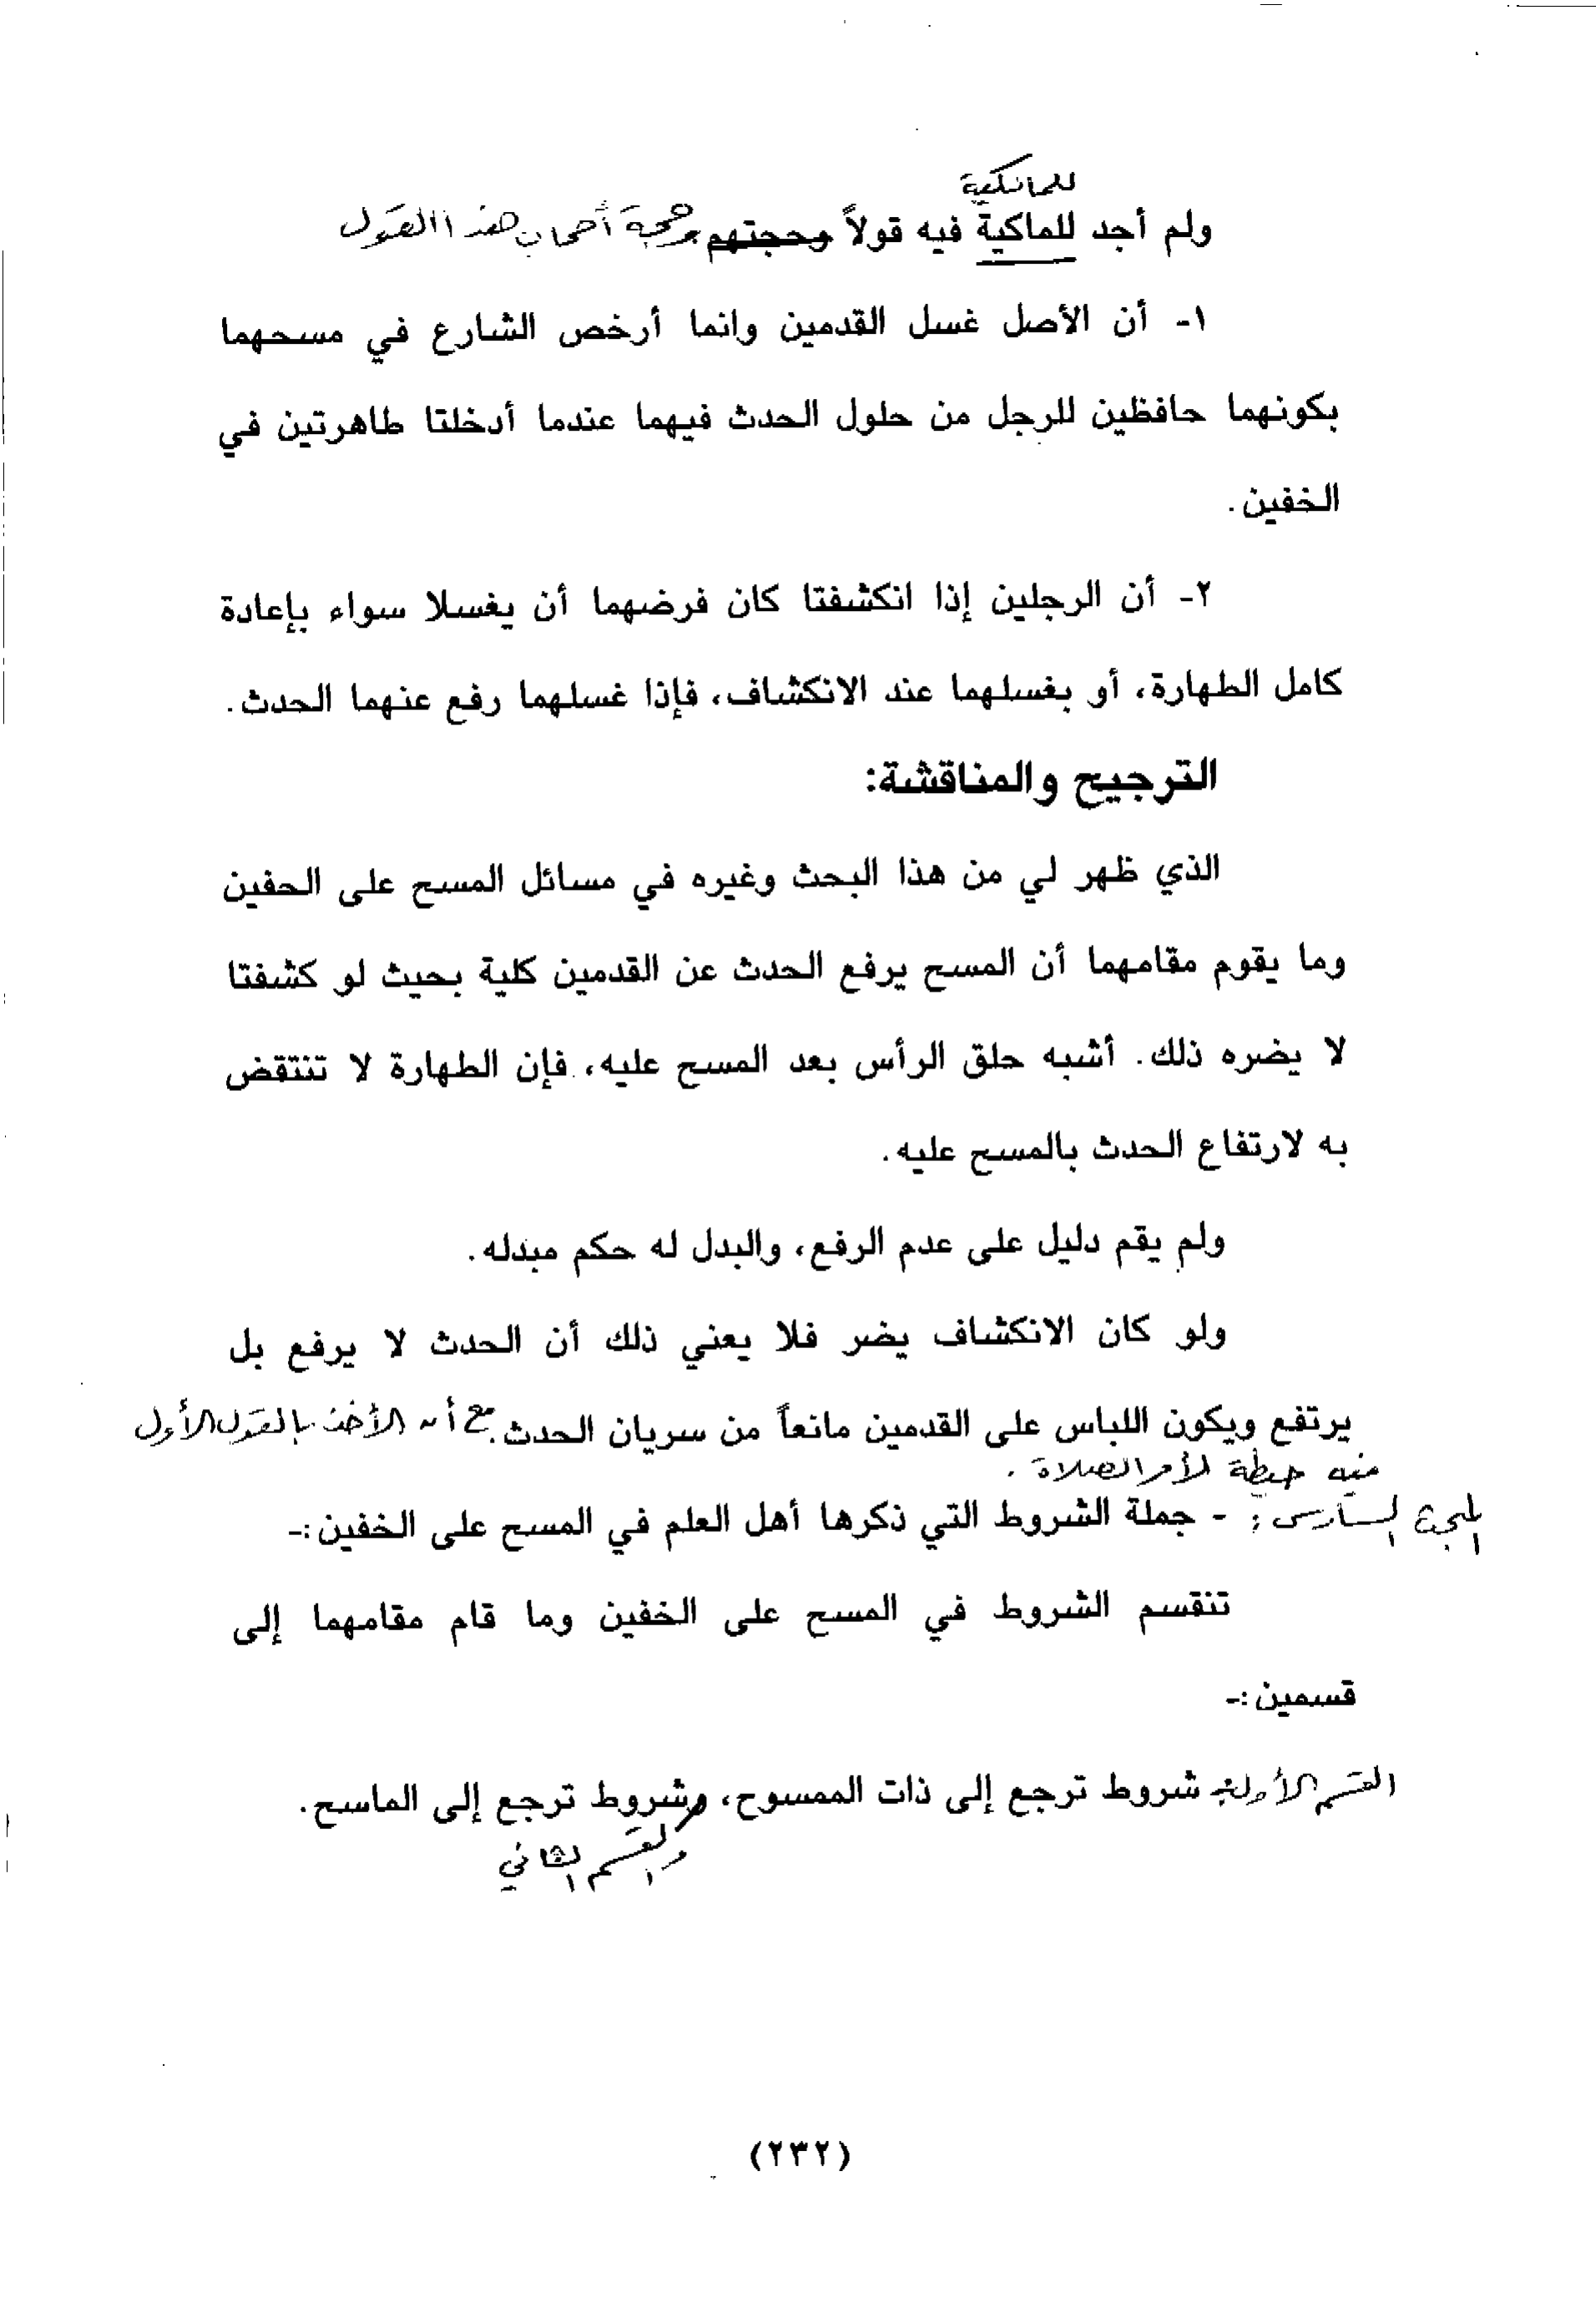 للمالكية
ولم أجد للماكية فيه قولاً وحجتهم وحجة أصحاب هذا القول
١- أن الأصل غسل القدمين وانما أرخص الشارع في مسحهما
بكونهما حافظين للرجل من حلول الحدث فيهما عندما أدخلتا طاهرتين في
الخفين.
٢- أن الرجلين إذا انكشفتا كان فرضهما أن يغسلا سواء بإعادة
كامل الطهارة، أو بغسلهما عند الانكشاف، فإذا غسلهما رفع عنهما الحدث.
الترجيح والمناقشة:
الذي ظهر لي من هذا البحث وغيره في مسائل المسح على الحفين
وما يقوم مقامهما أن المسح يرفع الحدث عن القدمين كلية بحيث لو كشفتا
لا يضره ذلك. أشبه حلق الرأس بعد المسح عليه، فإن الطهارة لا تنتقض
به لارتفاع الحدث بالمسح عليه.
ولم يقم دليل على عدم الرفع، والبدل له حكم مبدله.
ولو كان الانكشاف يضر فلا يعني ذلك أن الحدث لا يرفع بل
يرتفع ويكون اللباس على القدمين مانعاً من سريان الحدث. مع أن الأخذ بالقول الأول
فيه حيطة لأمر الصلاة.
السادس: - جملة الشروط التي ذكرها أهل العلم في المسح على الخفين:-
تنقسم الشروط في المسح على الخفين وما قام مقامهما إلى
قسمين:-
القسم الأول: شروط ترجع إلى ذات الممسوح، وشروط ترجع إلى الماسح.
والقسم الثاني
(٢٣٢)